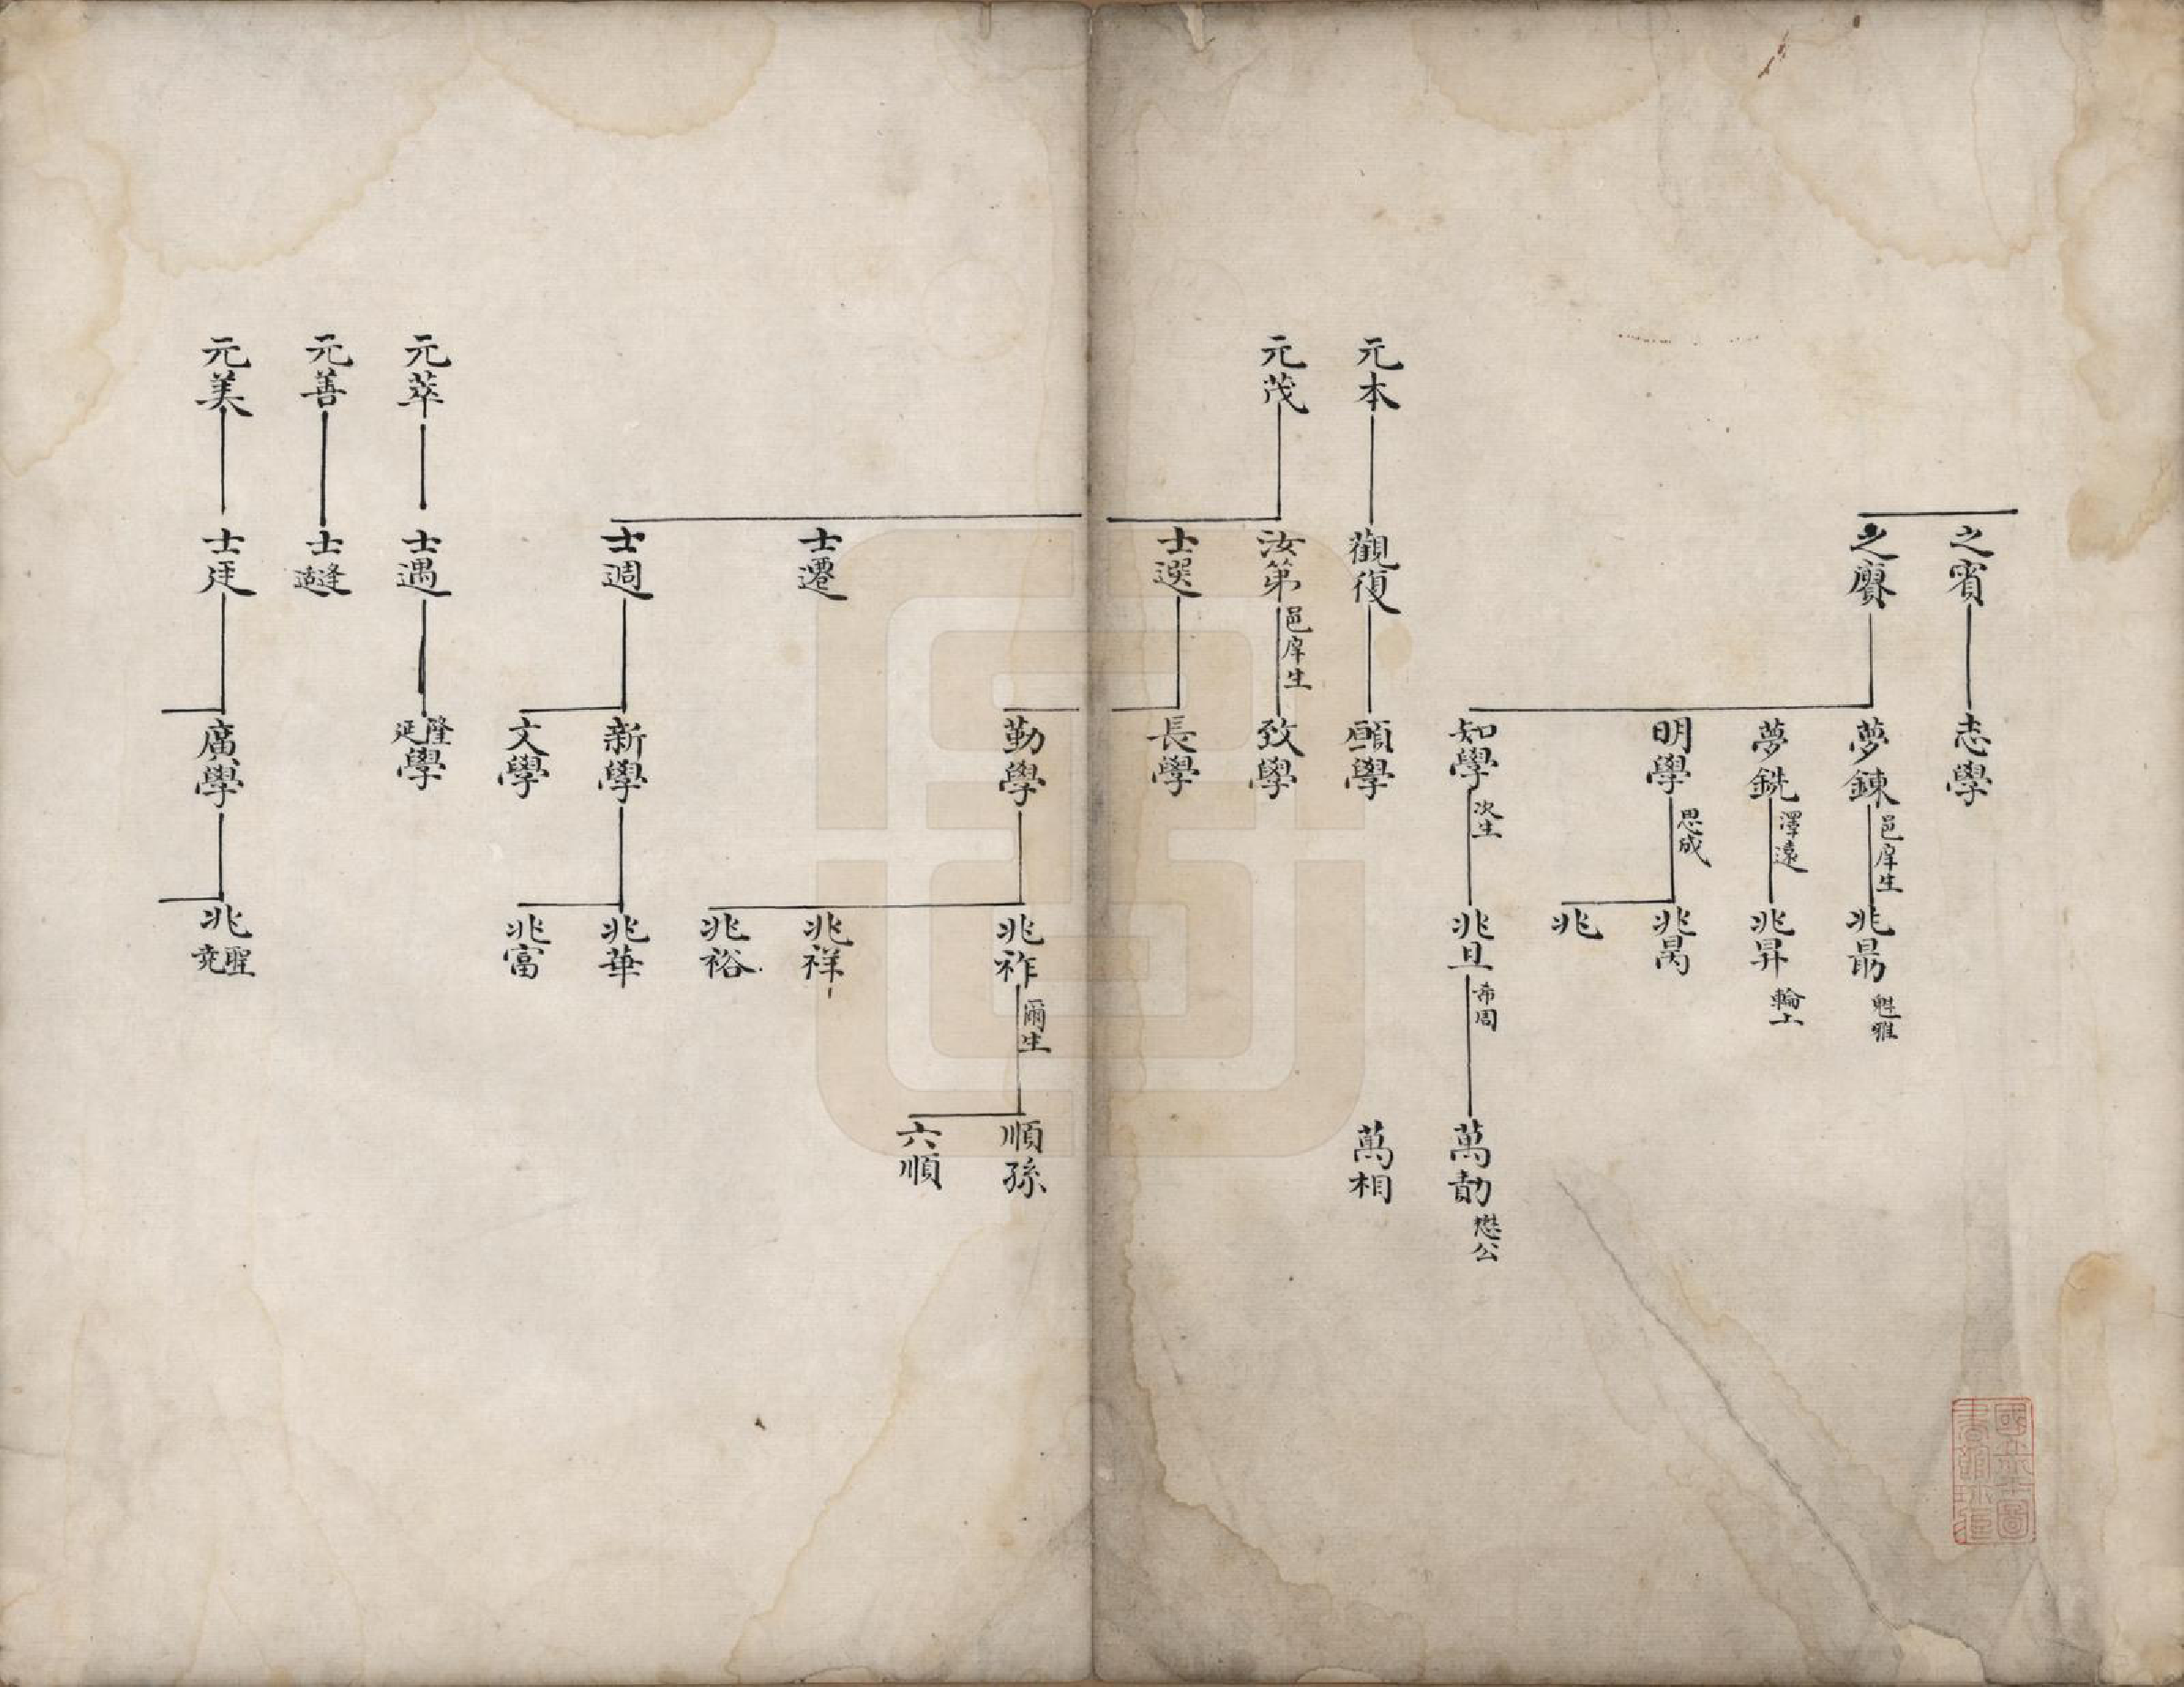 之賓
志學
之賡
夢鍊 邑庠生
兆最 魁雅
夢銑 澤遠
兆昇 輪上
明學 思成
兆昺
兆
知學 次生
兆旦 希周
萬勣 懋公
萬相
元本
觀復
願學
元茂
汝第 邑庠生
致學
士選
長學
勤學
兆祚 爾生
順孫
六順
兆祥
兆裕
士遷
士週
新學
兆華
兆富
文學
元萃
士遇
隆
延
學
元善
士
逢
适
元美
士廷
廣學
兆
聖
堯